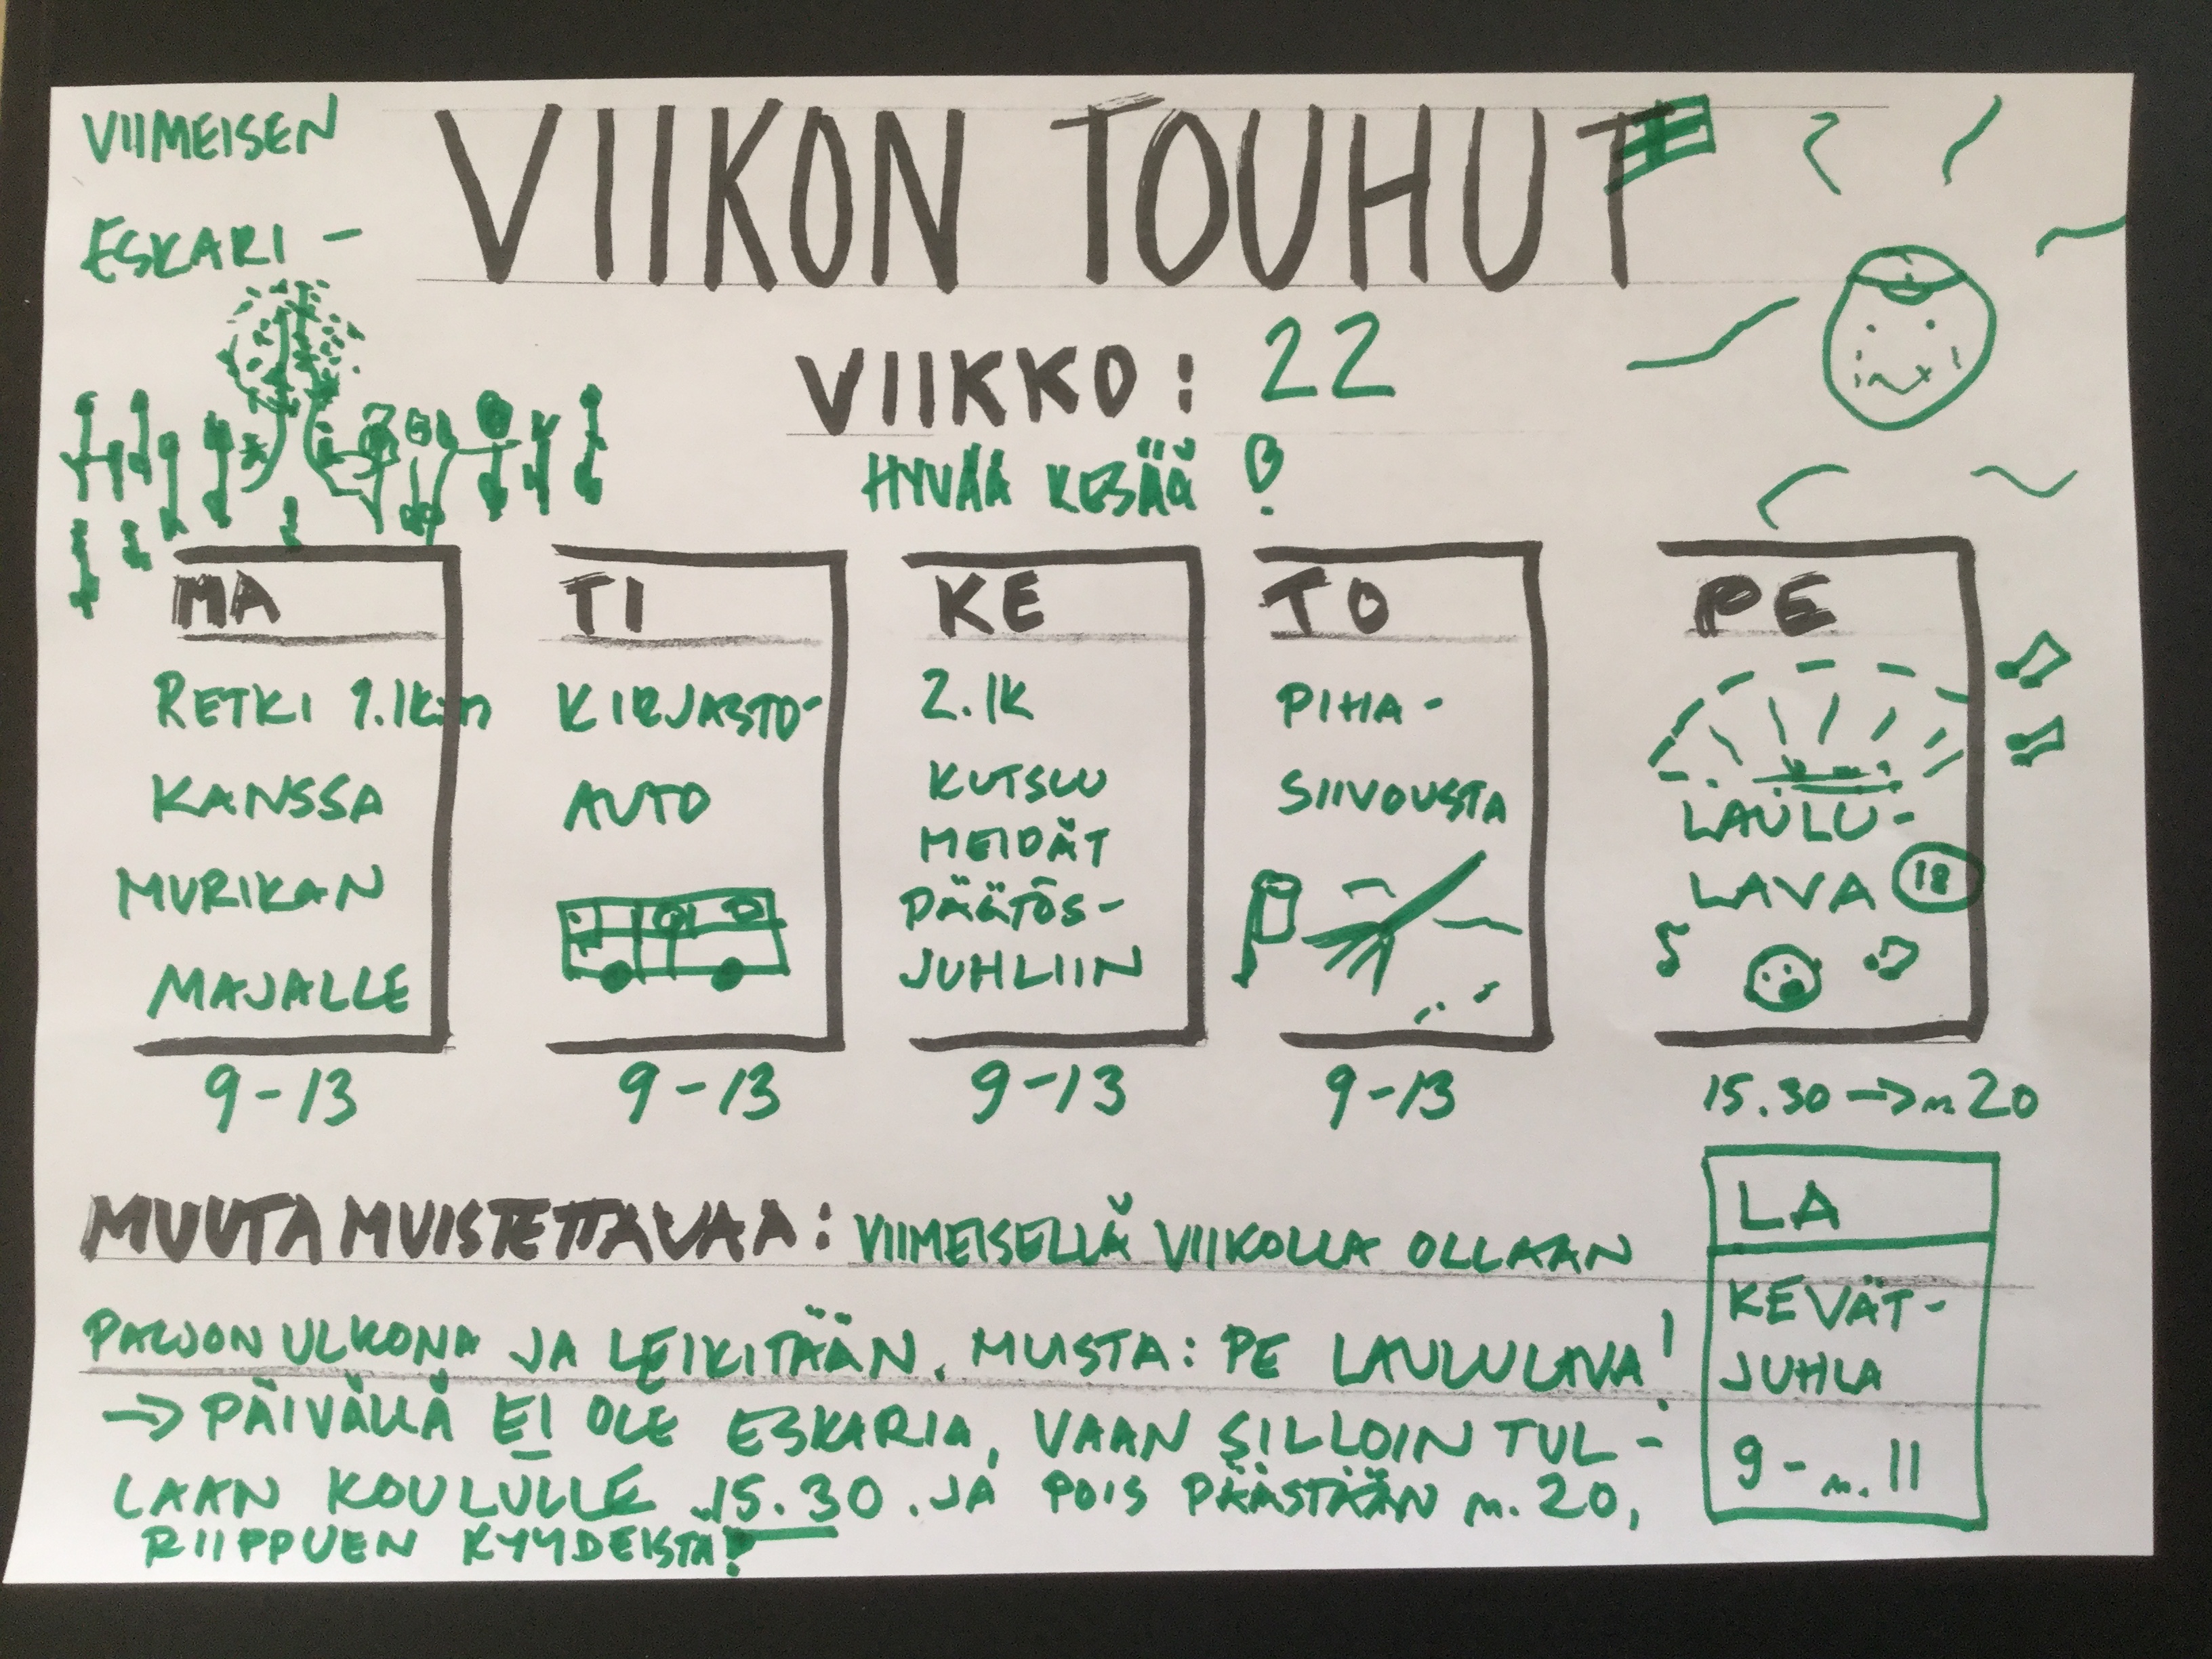 VIIMEISEN
ESKARI-
VIIKON TOUHUT
VIIKKO: 22
HYVÄÄ KESÄÄ!
MA
RETKI 1.lk:n
KANSSA
MURIKAN
MAJALLE
9-13
TI
KIRJASTO-
AUTO
9-13
KE
2.lK
KUTSUU
MEIDÄT
PÄÄTÖS-
JUHLIIN
9-13
TO
PIHA-
SIIVOUSTA
9-13
PE
LAULU-
LAVA 18
15.30 → n. 20
LA
KEVÄT-
JUHLA
9 - n. 11
MUUTA MUISTETTAVAA: VIIMEISELLÄ VIIKOLLA OLLAAN
PALJON ULKONA JA LEIKITÄÄN. MUISTA: PE LAULULAVA!
→ PÄIVÄLLÄ EI OLE ESKARIA, VAAN SILLOIN TUL-
LAAN KOULULLE 15.30. JA POIS PÄÄSTÄÄN n. 20,
RIIPPUEN KYYDEISTÄ!